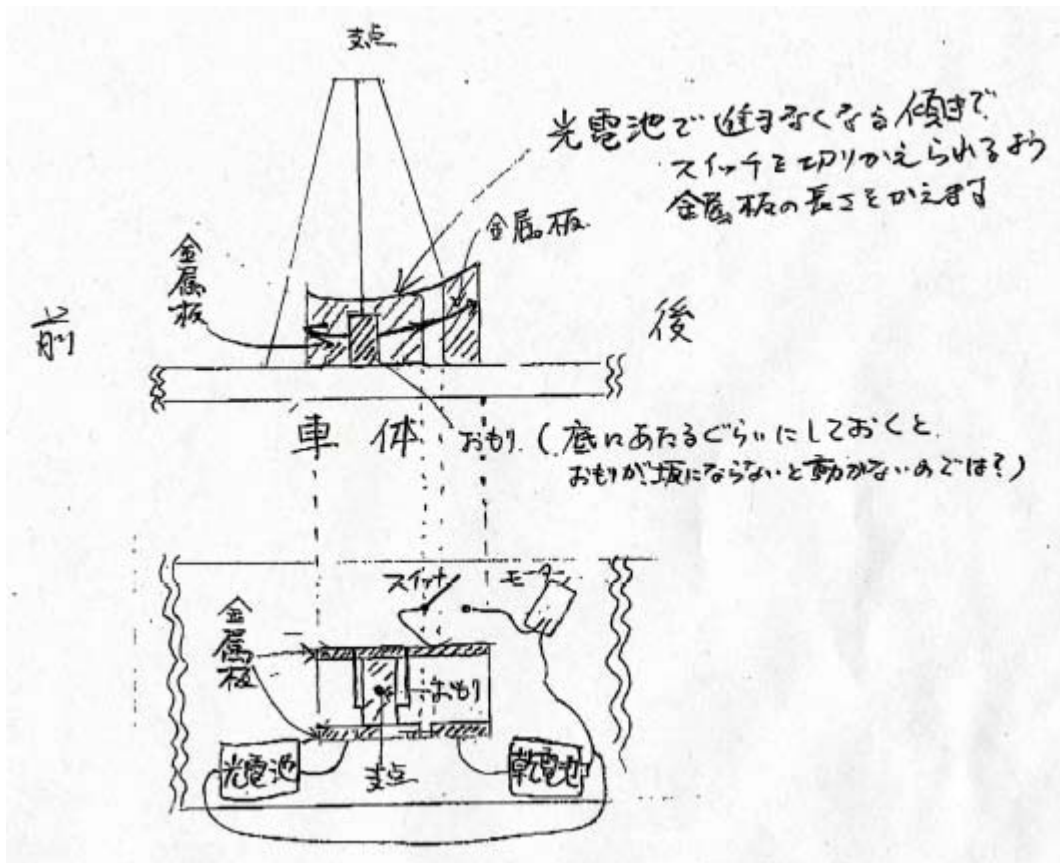 支点
光電池で進まなくなる傾きで
スイッチを切りかえられるよう
金属板の長さをかえます
金属板
金属板
前
後
車体
おもり.(底にあたるぐらいにしておくと、
おもりが坂にならないと動かないのでは?)
スイッチ
モーター
金属板
おもり
光電池
支点
乾電池